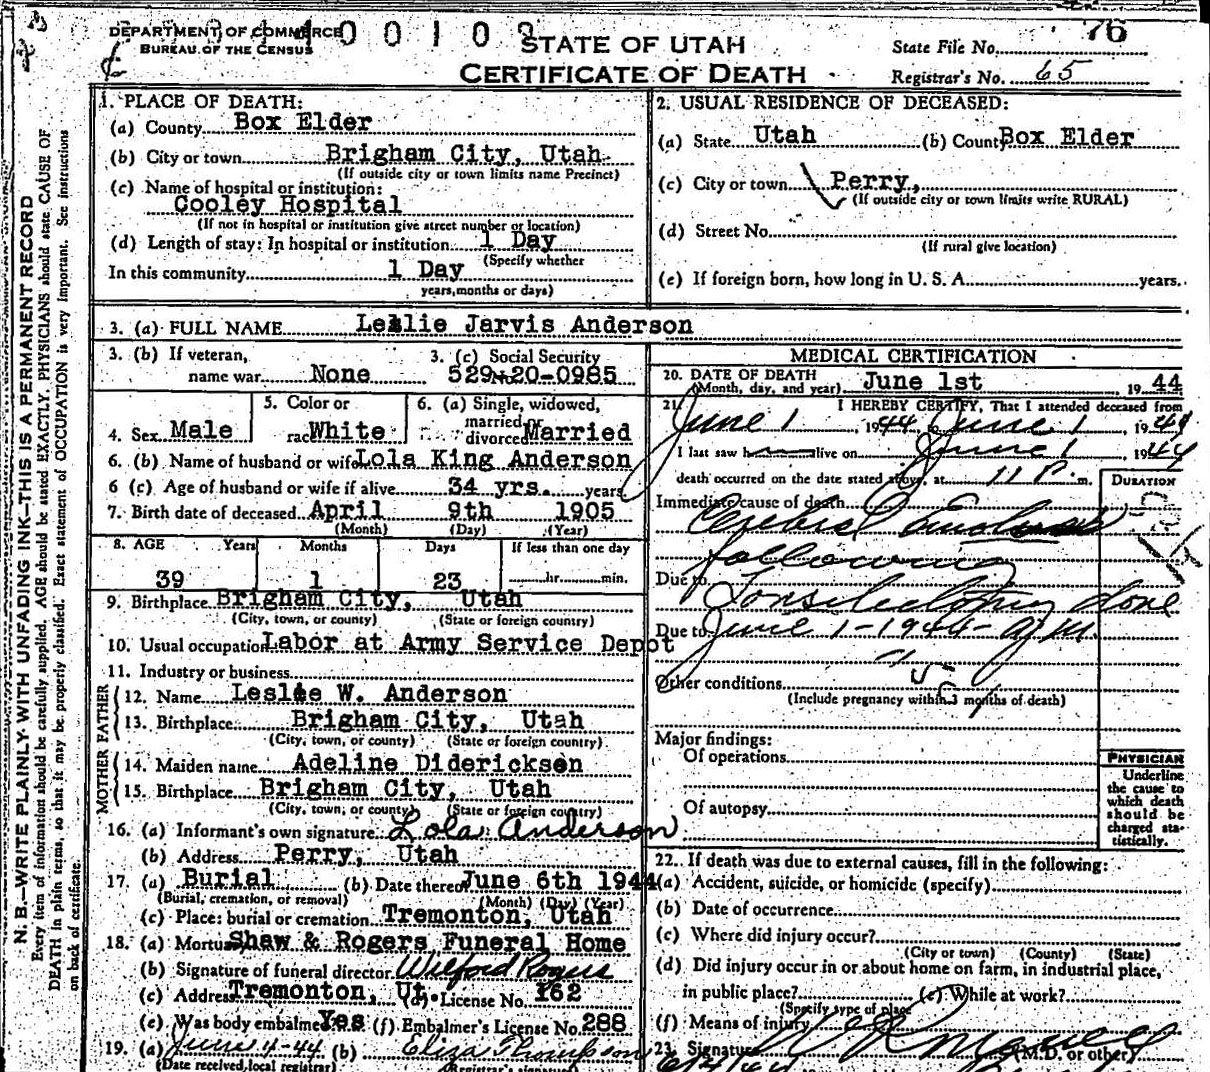 DEPARTMENT OF COMMERCE
BUREAU OF THE CENSUS
STATE OF UTAH
CERTIFICATE OF DEATH
76
State File No.
Registrar's No. 65
N. B.—WRITE PLAINLY WITH UNFADING INK—THIS IS A PERMANENT RECORD
Every item of information should be carefully supplied. AGE should be stated EXACTLY. PHYSICIANS should state CAUSE OF
DEATH in plain terms, so that it may be properly classified. Exact statement of OCCUPATION is very important. See instructions
on back of certificate.
1. PLACE OF DEATH:
(a) County Box Elder
(b) City or town Brigham City, Utah
(If outside city or town limits name Precinct)
(c) Name of hospital or institution:
Cooley Hospital
(If not in hospital or institution give street number or location)
(d) Length of stay: In hospital or institution 1 Day
(Specify whether
In this community 1 Day
years, months or days)
2. USUAL RESIDENCE OF DECEASED:
(a) State Utah (b) County Box Elder
(c) City or town Perry,
(If outside city or town limits write RURAL)
(d) Street No.
(If rural give location)
(e) If foreign born, how long in U. S. A. years.
3. (a) FULL NAME Leslie Jarvis Anderson
3. (b) If veteran, 3. (c) Social Security
name war None 529-20-0985
5. Color or 6. (a) Single, widowed,
4. Sex Male race White married or divorced Married
6. (b) Name of husband or wife Lola King Anderson
6 (c) Age of husband or wife if alive 34 yrs. years
7. Birth date of deceased April 9th 1905
(Month) (Day) (Year)
8. AGE Years Months Days If less than one day
39 1 23 hr. min.
9. Birthplace Brigham City, Utah
(City, town, or county) (State or foreign country)
10. Usual occupation Labor at Army Service Depot
11. Industry or business
FATHER
12. Name Leslie W. Anderson
13. Birthplace Brigham City, Utah
(City, town, or county) (State or foreign country)
MOTHER
14. Maiden name Adeline Didericksen
15. Birthplace Brigham City, Utah
(City, town, or county) (State or foreign country)
16. (a) Informant's own signature Lola Anderson
(b) Address Perry, Utah
17. (a) Burial (b) Date thereof June 6th 1944
(Burial, cremation, or removal) (Month) (Day) (Year)
(c) Place: burial or cremation Tremonton, Utah
18. (a) Mortuary Shaw & Rogers Funeral Home
(b) Signature of funeral director Wilford Rogers
(c) Address Tremonton, Ut. (d) License No. 162
(e) Was body embalmed Yes (f) Embalmer's License No. 288
19. (a) June 4-44 (b) Eliza Thompson
(Date received local registrar) (Registrar's signature)
MEDICAL CERTIFICATION
20. DATE OF DEATH
(Month, day, and year) June 1st 1944
21. I HEREBY CERTIFY, That I attended deceased from
June 1, 1944, to June 1, 1944
I last saw h alive on June 1 1944
death occurred on the date stated above, at 11 P. m.
DURATION
Immediate cause of death
Cerebral Embolus
following
Due to Tonsilectomy done
Due to June 1-1944- a.m.
Other conditions
(Include pregnancy within 3 months of death)
Major findings:
Of operations
Of autopsy
PHYSICIAN
Underline
the cause to
which death
should be
charged sta-
tistically.
22. If death was due to external causes, fill in the following:
(a) Accident, suicide, or homicide (specify)
(b) Date of occurrence
(c) Where did injury occur?
(City or town) (County) (State)
(d) Did injury occur in or about home on farm, in industrial place,
in public place? (e) While at work?
(Specify type of place
(f) Means of injury
23. Signature (M.D. or other)
6/4/44